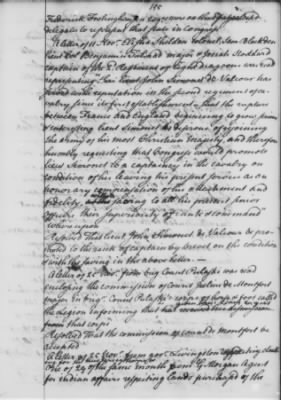 195
Frederick Frelinghuysen esqr. one of the delegates
delegate to represent that state in Congress
A letter of 11 Novr. Elisha Sheldon Colonel, Saml. Blackden
lieut. Colo. Benjamin Tallmadge major & Josiah Stoddard
captain of the 2d. Regiment of light dragoons was read
representing that lieut John Simonet de Valcour has
served with reputation in the second regiment of ca-
valry since its first establishment — that the rupture
between France and England beginning to grow serious
& interesting lieut Simonet is desirous of rejoining
the army of his most Christian Majesty, and therefore
humbly requesting that Congress would promote
lieut Simonet to a captaincy in the cavalry on
condition of his leaving the present service as an
honor and compensation of his attachment and
fidelity, at the same time saving to all the present senior
officers their superiority of rank & command
Whereupon
Resolved That lieut. John Simonet de Valcour be pro-
moted to the rank of captain by brevet on the condition
& with the saving in the above letter. —
A letter of 25 Novr. from brigr. Count Pulaski was read
enclosing the commission of count Julius de Montfort
major in brigr. Count Pulaski's corps of horse & foot called
the legion informing that
from that corps
Resolved That the commission of count de Montfort be
accepted
A letter of 25 Novr. from govr. Livingston
One of 24 of the same month from G. Morgan Agent
for Indian affairs respecting lands purchased of the